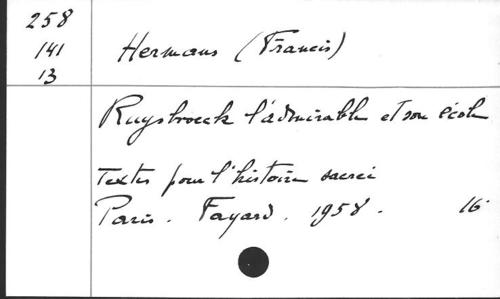 258
141
13
Hermans (Francis)
Ruysbroeck l'admirable et son école
Textes pour l'histoire sacrée
Paris. Fayard. 1958. 16°